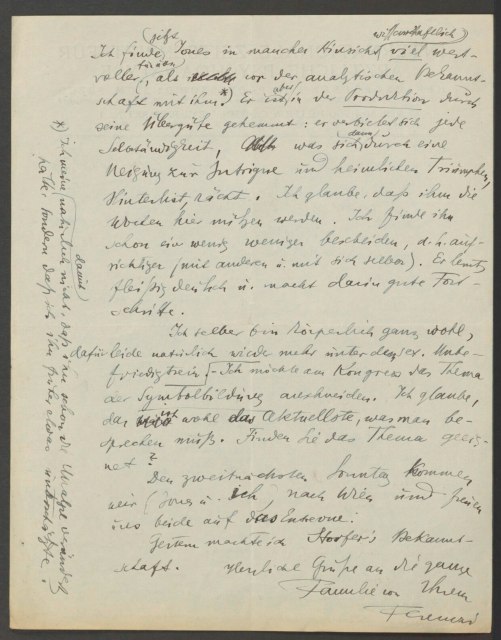 (jetzt
wissenschaftlich)
Ich finde Jones in mancher Hinsicht viel wert-
voller, als vor der analytischen Bekannt-
schaft mit ihm. *) Er ist aber in der Produktion durch
seine Übergüte gehemmt: er verbietet sich jede
Selbständigkeit, was sich dann durch eine
Neigung zur Intrigue und heimlichen Triumphen,
Hinterlist, rächt. Ich glaube, daß ihm die
Wochen hier nützen werden. Ich finde ihn
schon ein wenig weniger bescheiden, d. h. auf-
richtiger (mit anderen u. mit sich selber). Er lernt
fleißig deutsch u. macht darin gute Fort-
schritte.
Ich selber bin körperlich ganz wohl,
dafür leide natürlich wieder mehr unter der sex. Unbe-
friedigtsein. – Ich möchte am Kongress das Thema
der Symbolbildung anschneiden. Ich glaube,
das ist wohl das Aktuellste, was man be-
sprechen muß. Finden Sie das Thema geeig-
net?
Den zweitnächsten Sonntag kommen
wir (Jones u. ich) nach Wien und freuen
uns beide auf das Entrevue.
Gestern machte ich Storfer's Bekannt-
schaft. Herzliche Grüße an die ganze
Familie von Ihrem
Ferenczi
*) Ich meine damit natürlich nicht, daß ihn schon die Analyse verändert
hätte: sondern daß ich ihn früher etwas unterschätzte.